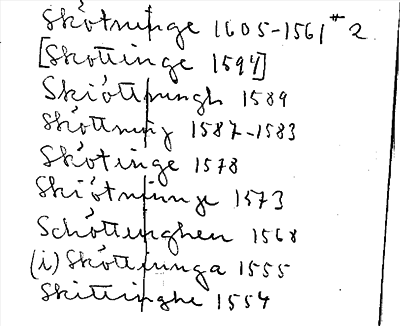 Skótnunge 1605-1561 # 2
[Skottinge 1594]
Skióttnungh 1589
Skóttnung 1587-1583
Skótinge 1578
Skiótniunge 1573
Schóttenghen 1568
(i) Skóttiunga 1555
Skittinghe 1554